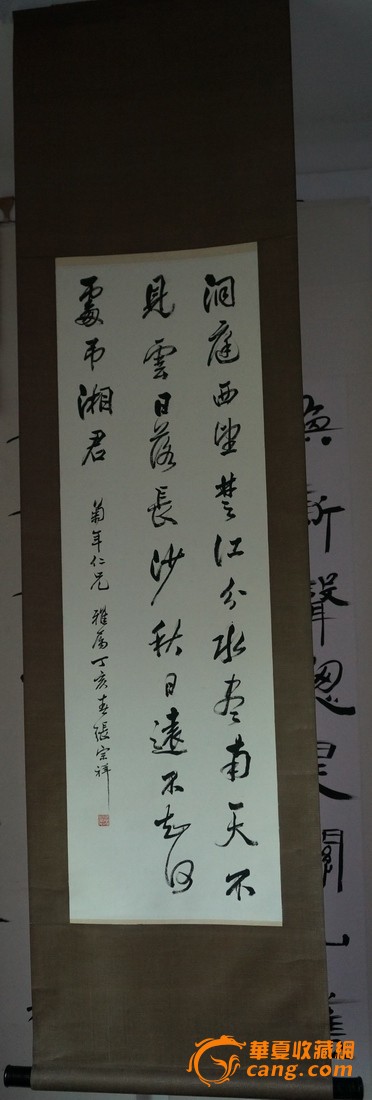 洞庭西望楚江分水盡南天不
見雲日落長沙秋日遠不知何
處吊湘君
菊年仁兄 雅屬 丁亥春 張宗祥
換新聲總是關
華夏收藏網
cang.com